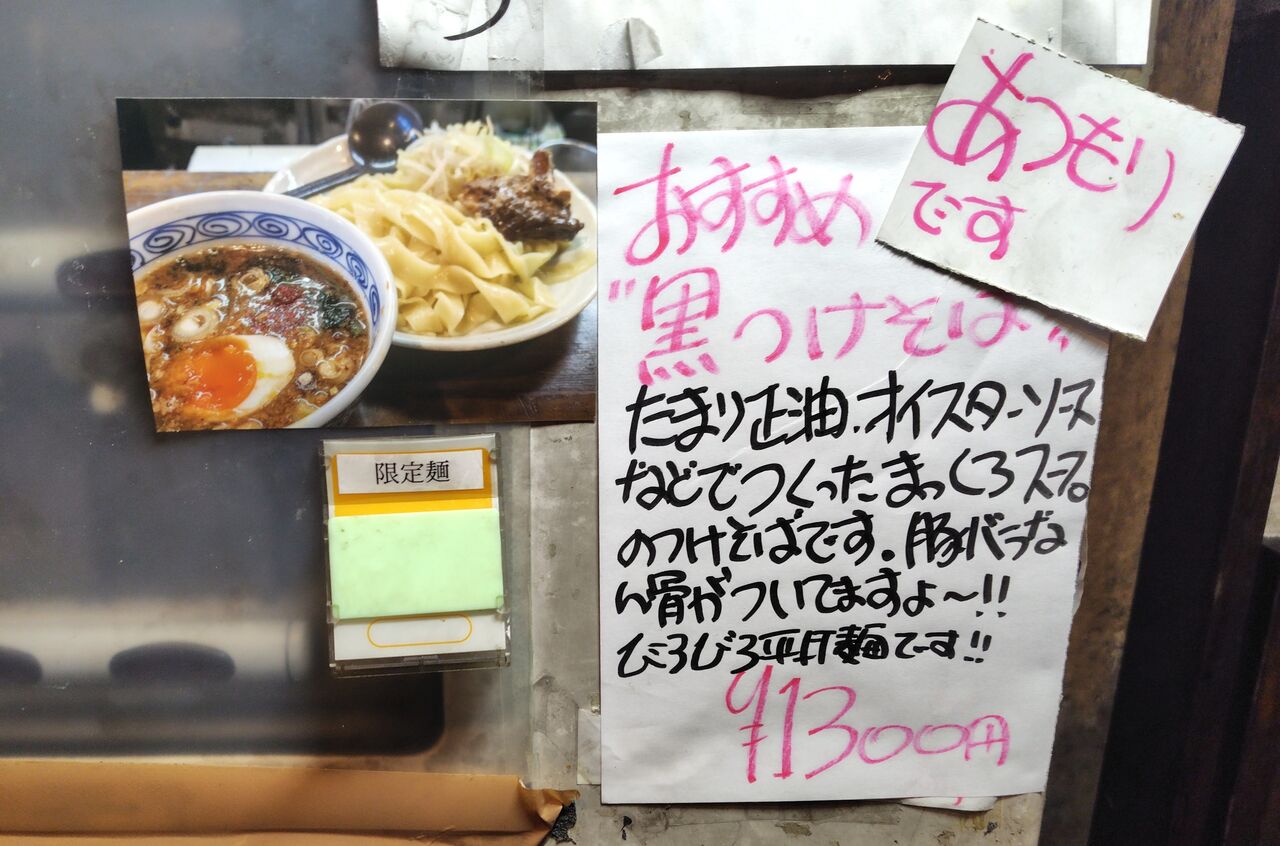 あつもり
です
おすすめ
"黒つけそば"
たまり正油、オイスターソース
などでつくったまっくろスープ。
のつけそばです。豚バラな
ん骨がついてますよ〜!!
びろびろ平打麺です!!
¥1300円
限定麺